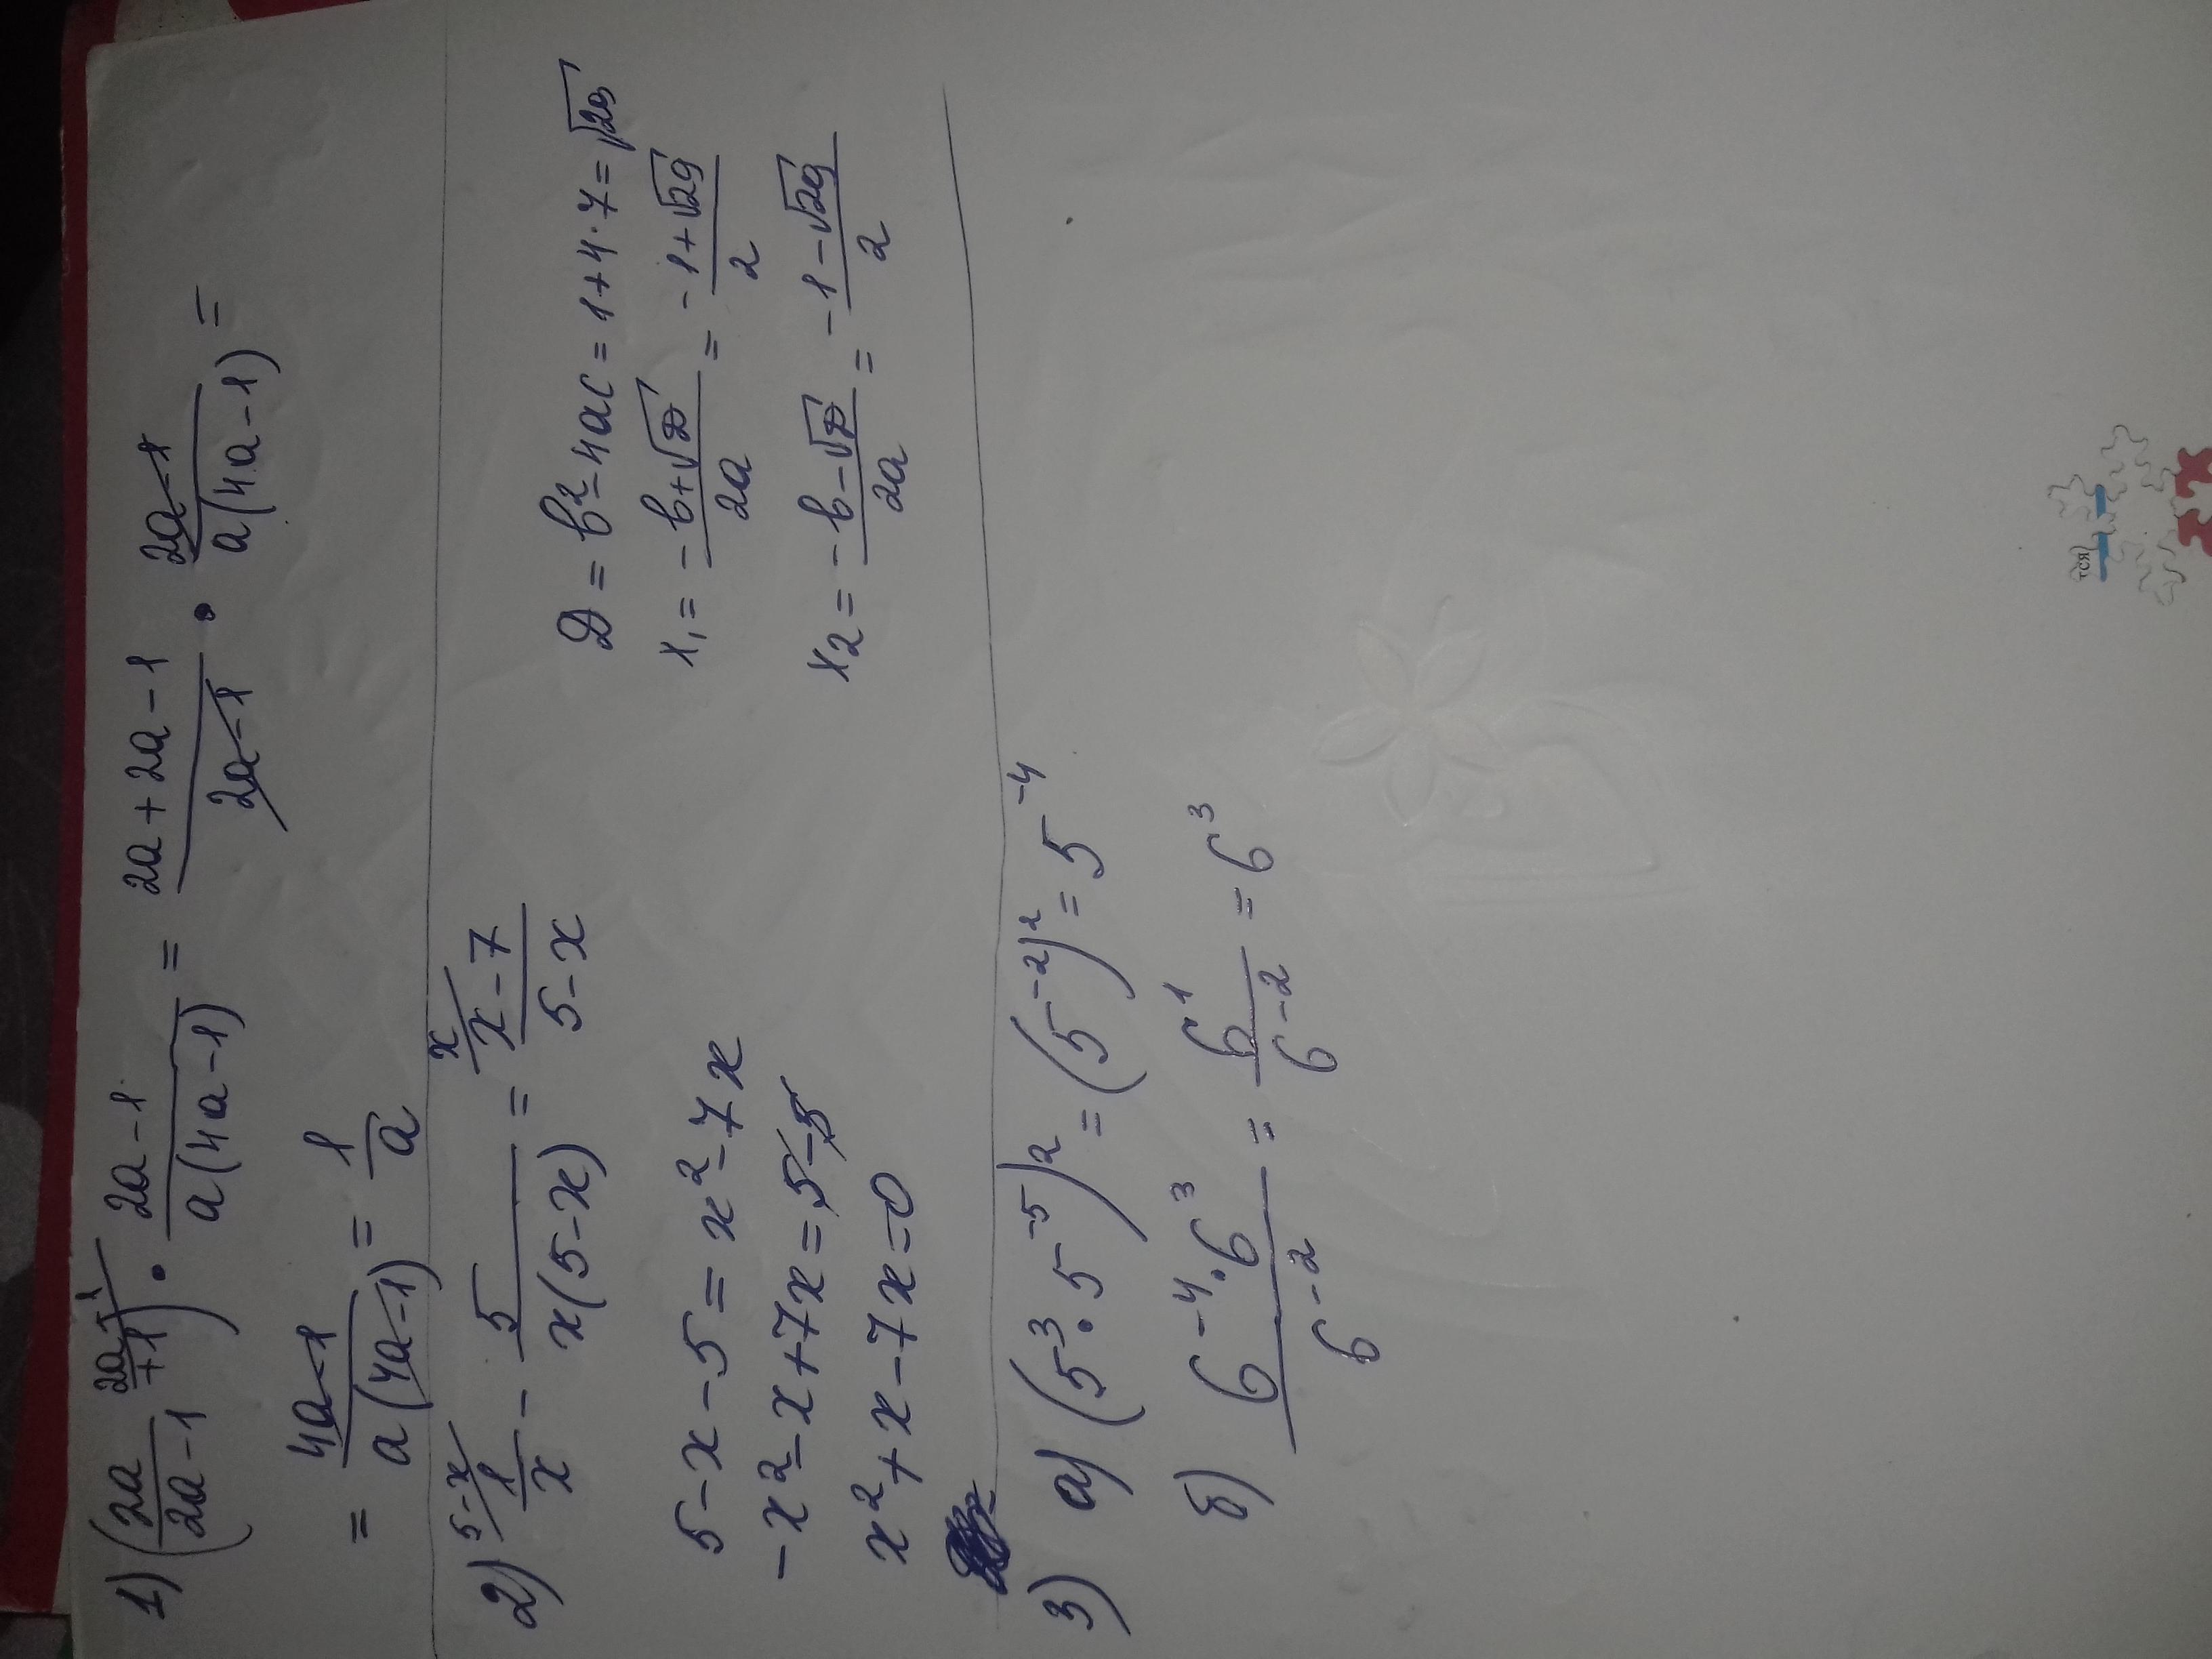 1) (2a/(2a-1) + 1 ^2a-1/) · (2a-1)/(a(4a-1)) = (2a+2a-1)/(2a-1) · (2a-1)/(a(4a-1)) =
= (4a-1)/(a(4a-1)) = 1/a
2) ^5-x/ 1/x - 5/(x(5-x)) = ^x/ (x-7)/(5-x)
5-x-5 = x²-7x
-x²-x+7x=5-5
x²+x-7x=0
Д = b²-4ac = 1+4·7=√29
x₁ = (-b+√Д)/2a = (-1+√29)/2
x₂ = (-b-√Д)/2a = (-1-√29)/2
3) a) (5³·5⁻⁵)² = (5⁻²)² = 5⁻⁴
б) (6⁻⁴·6³)/6⁻² = 6¹/6⁻² = 6³
тся